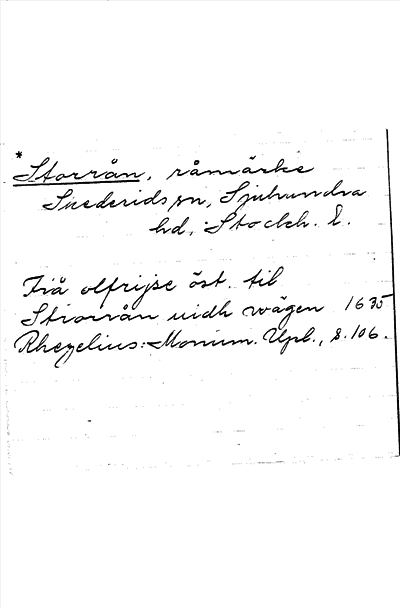 * Storrån, råmärke
Snederids sn, Sjuhundra
hd, Stockh. l.
Frå olfrijse öst. til
Stiorrån uidh wägen 1635
Rhezelius: Monum. Upl., s. 106.